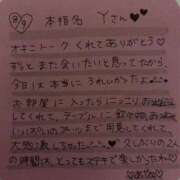 8/9 本指名 Yさん♥♥
オキニトーク くれてありがとう♡
ずっと また会いたいと思ってたから、
今日は本当に うれしかったよ
お部屋に入ったら にっこり
してくれて、テーブルに 飲み物
いっぱい 用意してくれてて
大感激しちゃった 久しぶりの2人
の時間は、とってもステキで 楽しかったわ♡